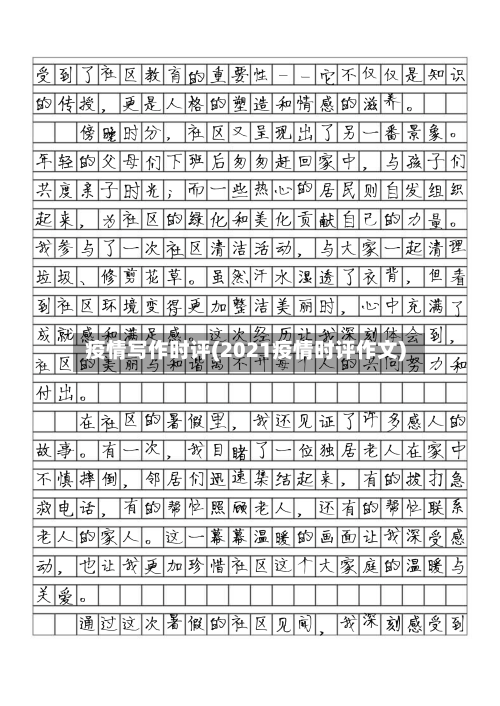 受到了社区教育的重要性--它不仅仅是知识
的传授，更是人格的塑造和情感的滋养。
傍晚时分，社区又呈现出了另一番景象。
年轻的父母们下班后匆匆赶回家中，与孩子们
共度亲子时光；而一些热心的居民则自发组织
起来，为社区的绿化和美化贡献自己的力量。
我参与了一次社区清洁活动，与大家一起清理
垃圾、修剪花草。虽然汗水湿透了衣背，但看
到社区环境变得更加整洁美丽时，心中充满了
成就感和满足感。这次经历让我深刻体会到，
疫情写作时评(2021疫情时评作文)
社区的美丽与和谐离不开每一人的共同努力和
付出。
在社区的暑假里，我还见证了许多感人的
故事。有一次，我目睹了一位独居老人在家中
不慎摔倒，邻居们迅速集结起来，有的拨打急
救电话，有的帮忙照顾老人，还有的帮忙联系
老人的家人。这一幕幕温暖的画面让我深受感
动，也让我更加珍惜社区这个大家庭的温暖与
关爱。
通过这次暑假的社区见闻，我深刻感受到